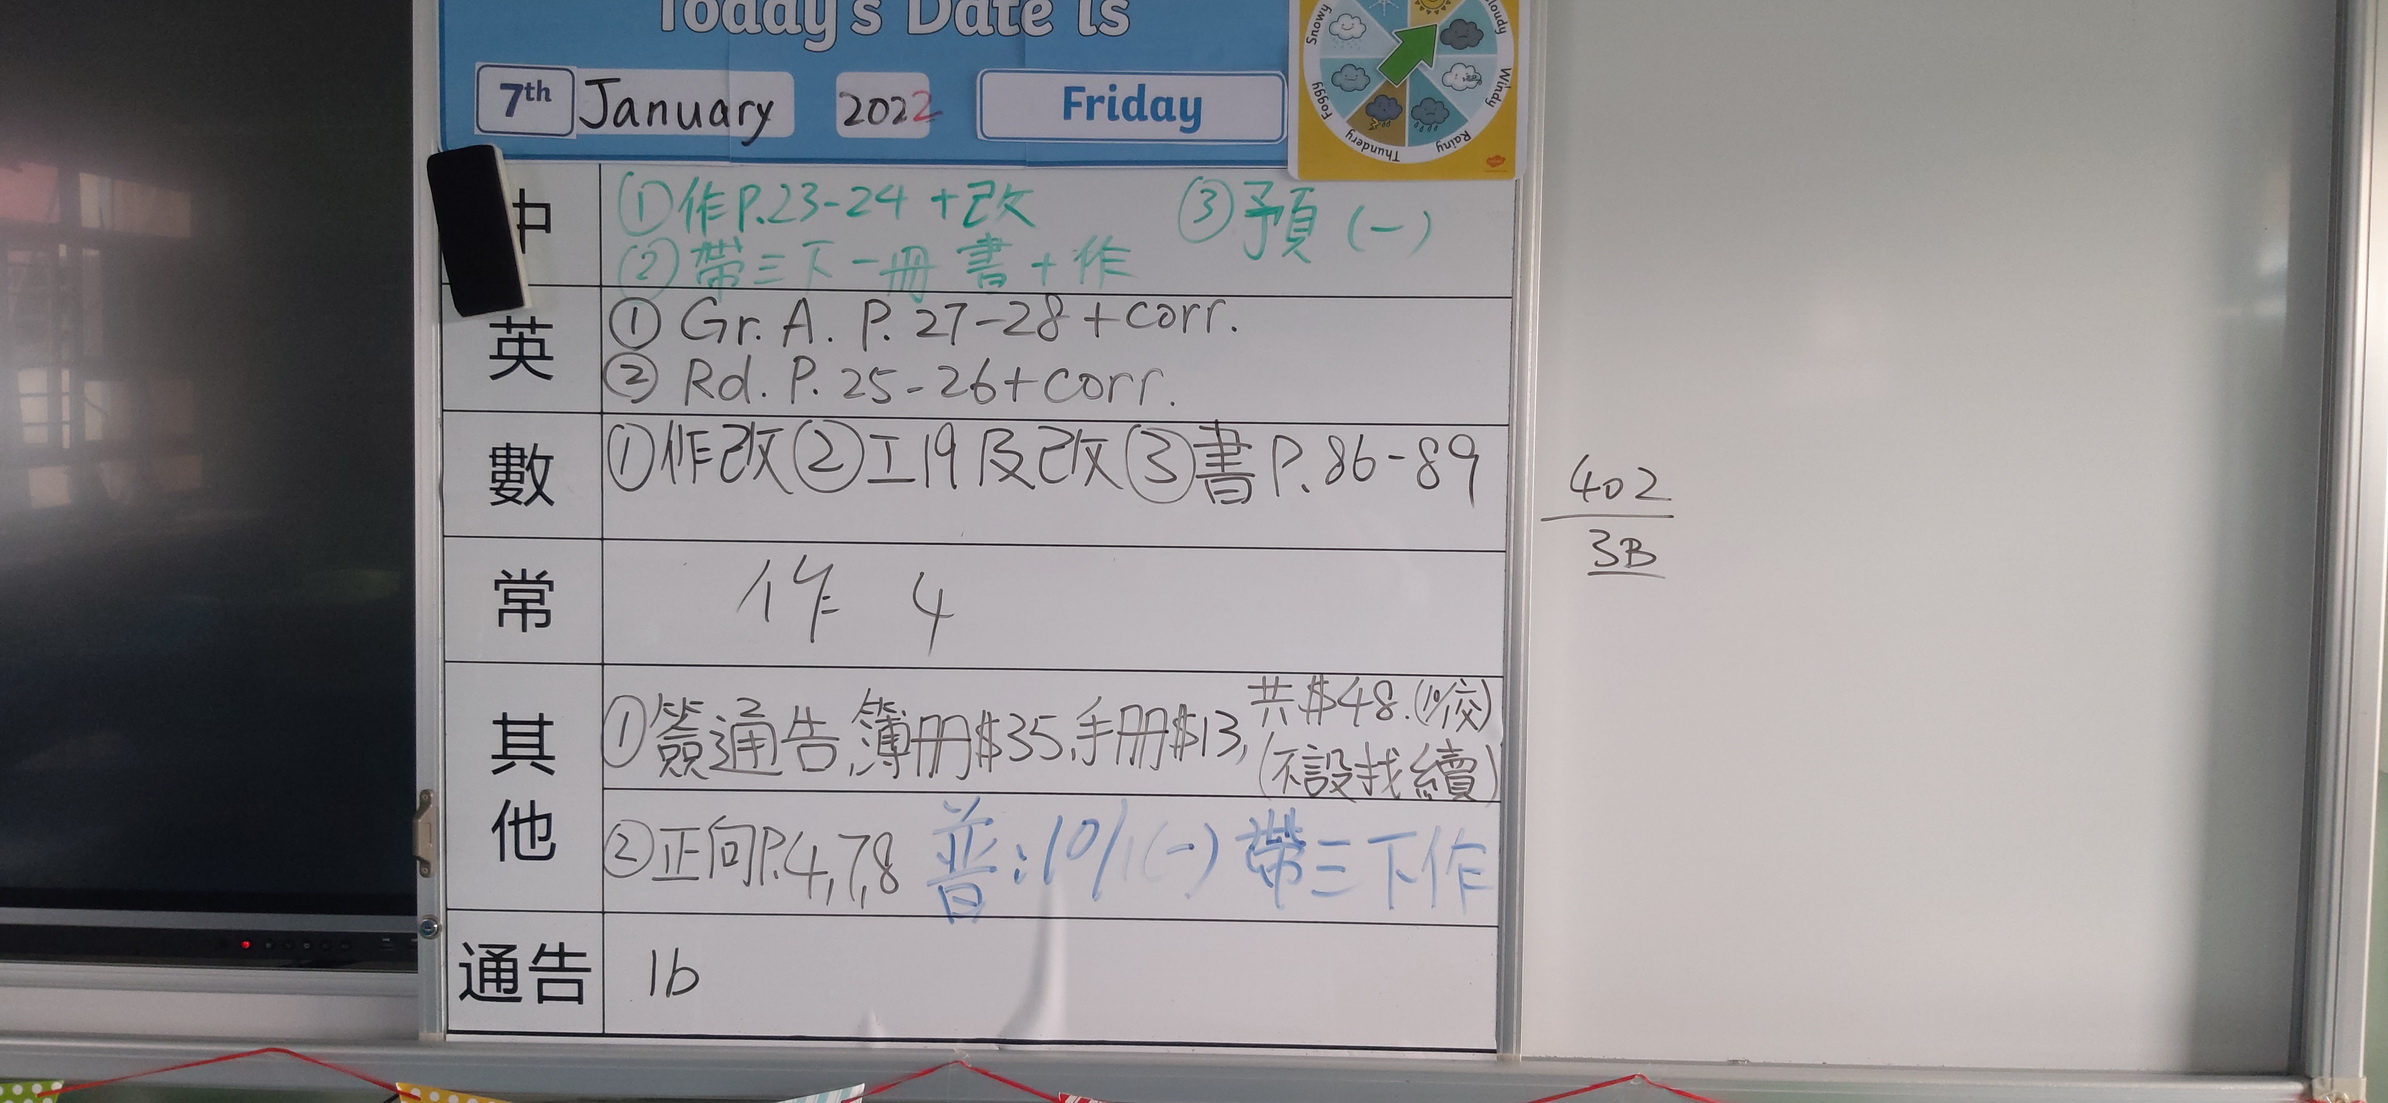 Today's Date is
7th January 2022 Friday
Snowy
Cloudy
Windy
Rainy
Thundery
Foggy
中 ①作P.23-24+改 ③預(一)
②帶三下一冊 書+作
英 ① Gr. A. P. 27-28+corr.
② Rd. P. 25-26+corr.
數 ①作改②工19及改③書P.86-89
402
3B
常 作 4
其他 ①簽通告,簿冊$35,手冊$13,共$48.(10/1交)
(不設找續)
②正向P.4,7,8 普:10/1(一)帶三下作
通告 16